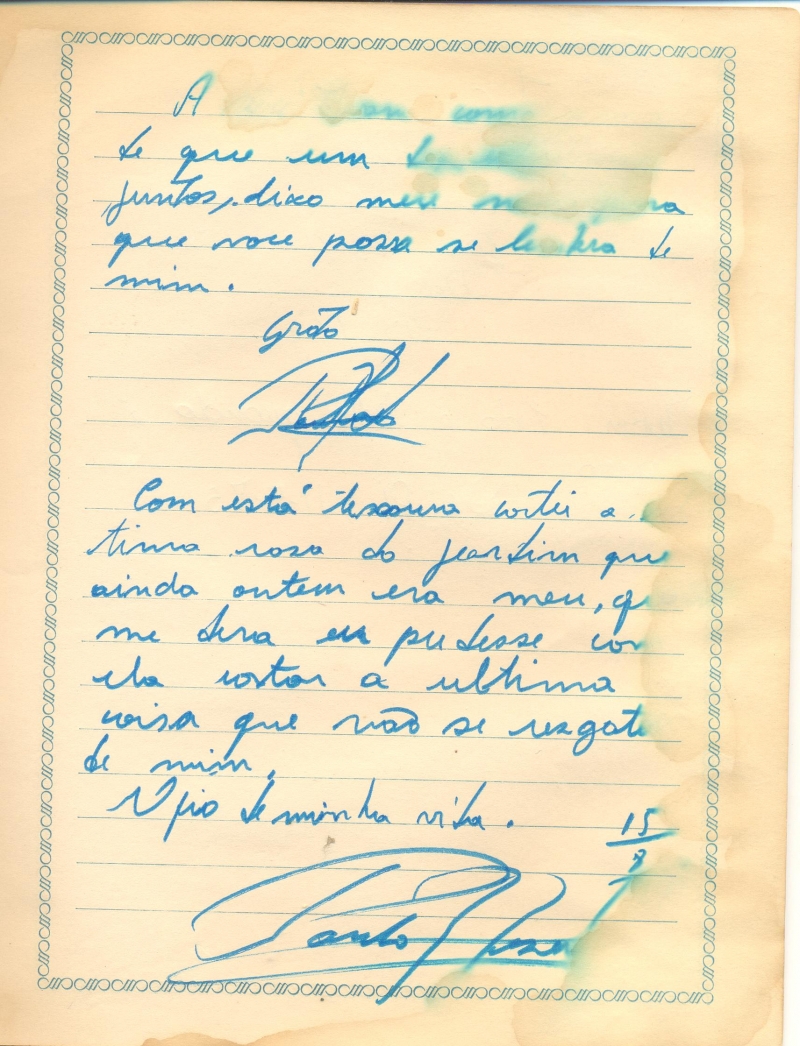 A
de que um
juntos, dixo meu
que voce possa se de
mim.
Grato
Com está tesoura cortei a
tima rosa do jardim que
ainda ontem era meu,
me dera eu pudesse com
ela cortar a ultima
coisa que não se resgate
de mim.
O fio de minha vida.
15
8
Paulo